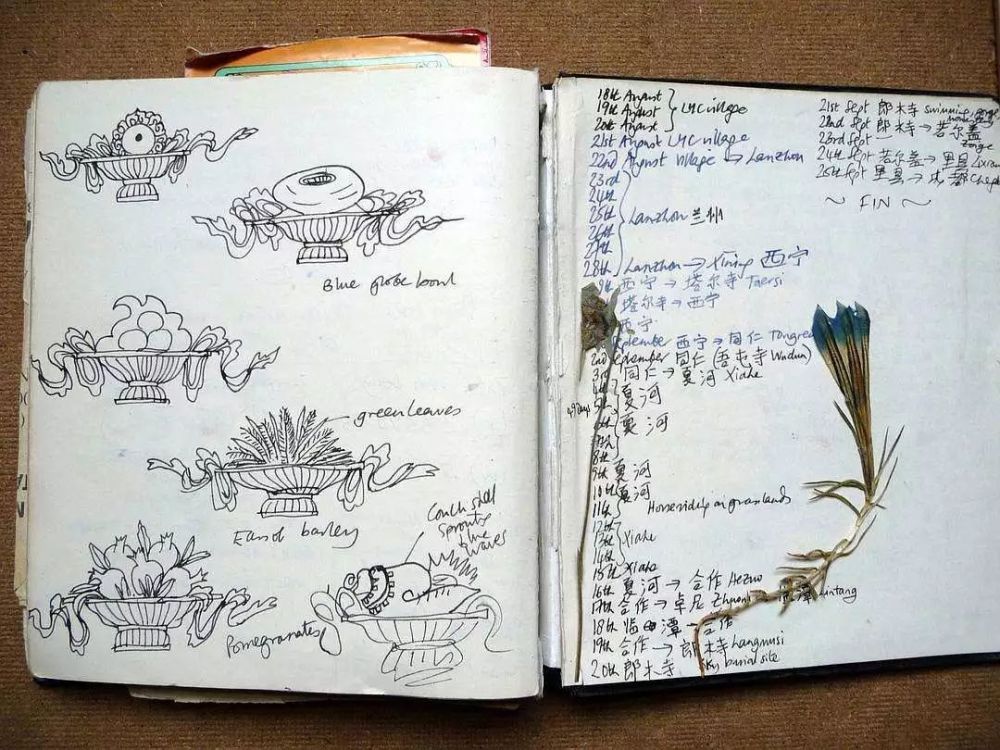 Blue globe bowl
green leaves
Ears of barley
Conch shell
sprouts
blue
waves
Pomegranates
18th August
19th August
20th August
LYC village
21st August LYC village
22nd August Village → Lanzhou
23rd
24th
25th
26th
27th
Lanzhou 兰州
28th Lanzhou → Xining 西宁
西宁 → 塔尔寺 Taersi
塔尔寺 → 西宁
西宁
西宁 → 同仁 Tongren
2nd September 同仁 (吾屯寺 Wudun)
3rd 同仁 → 夏河 Xiahe
夏河
夏河
7th
8th
9th 夏河
10th 夏河
11th Horseriding on grasslands
12th
13th
14th
Xiahe
15th Xiahe
16th 夏河 → 合作 Hezuo
17th 合作 → 卓尼 Zhuoni →
18th 临潭 → 合作
19th 合作 → 郎木寺 Langmusi
20th 郎木寺 sky burial site
21st Sept 郎木寺 swimming
22nd Sept 郎木寺 → 若尔盖
Zoige
23rd Sept
24th Sept 若尔盖 → 里县 Lixian
25th Sept 里县 → 成都
~ FIN ~